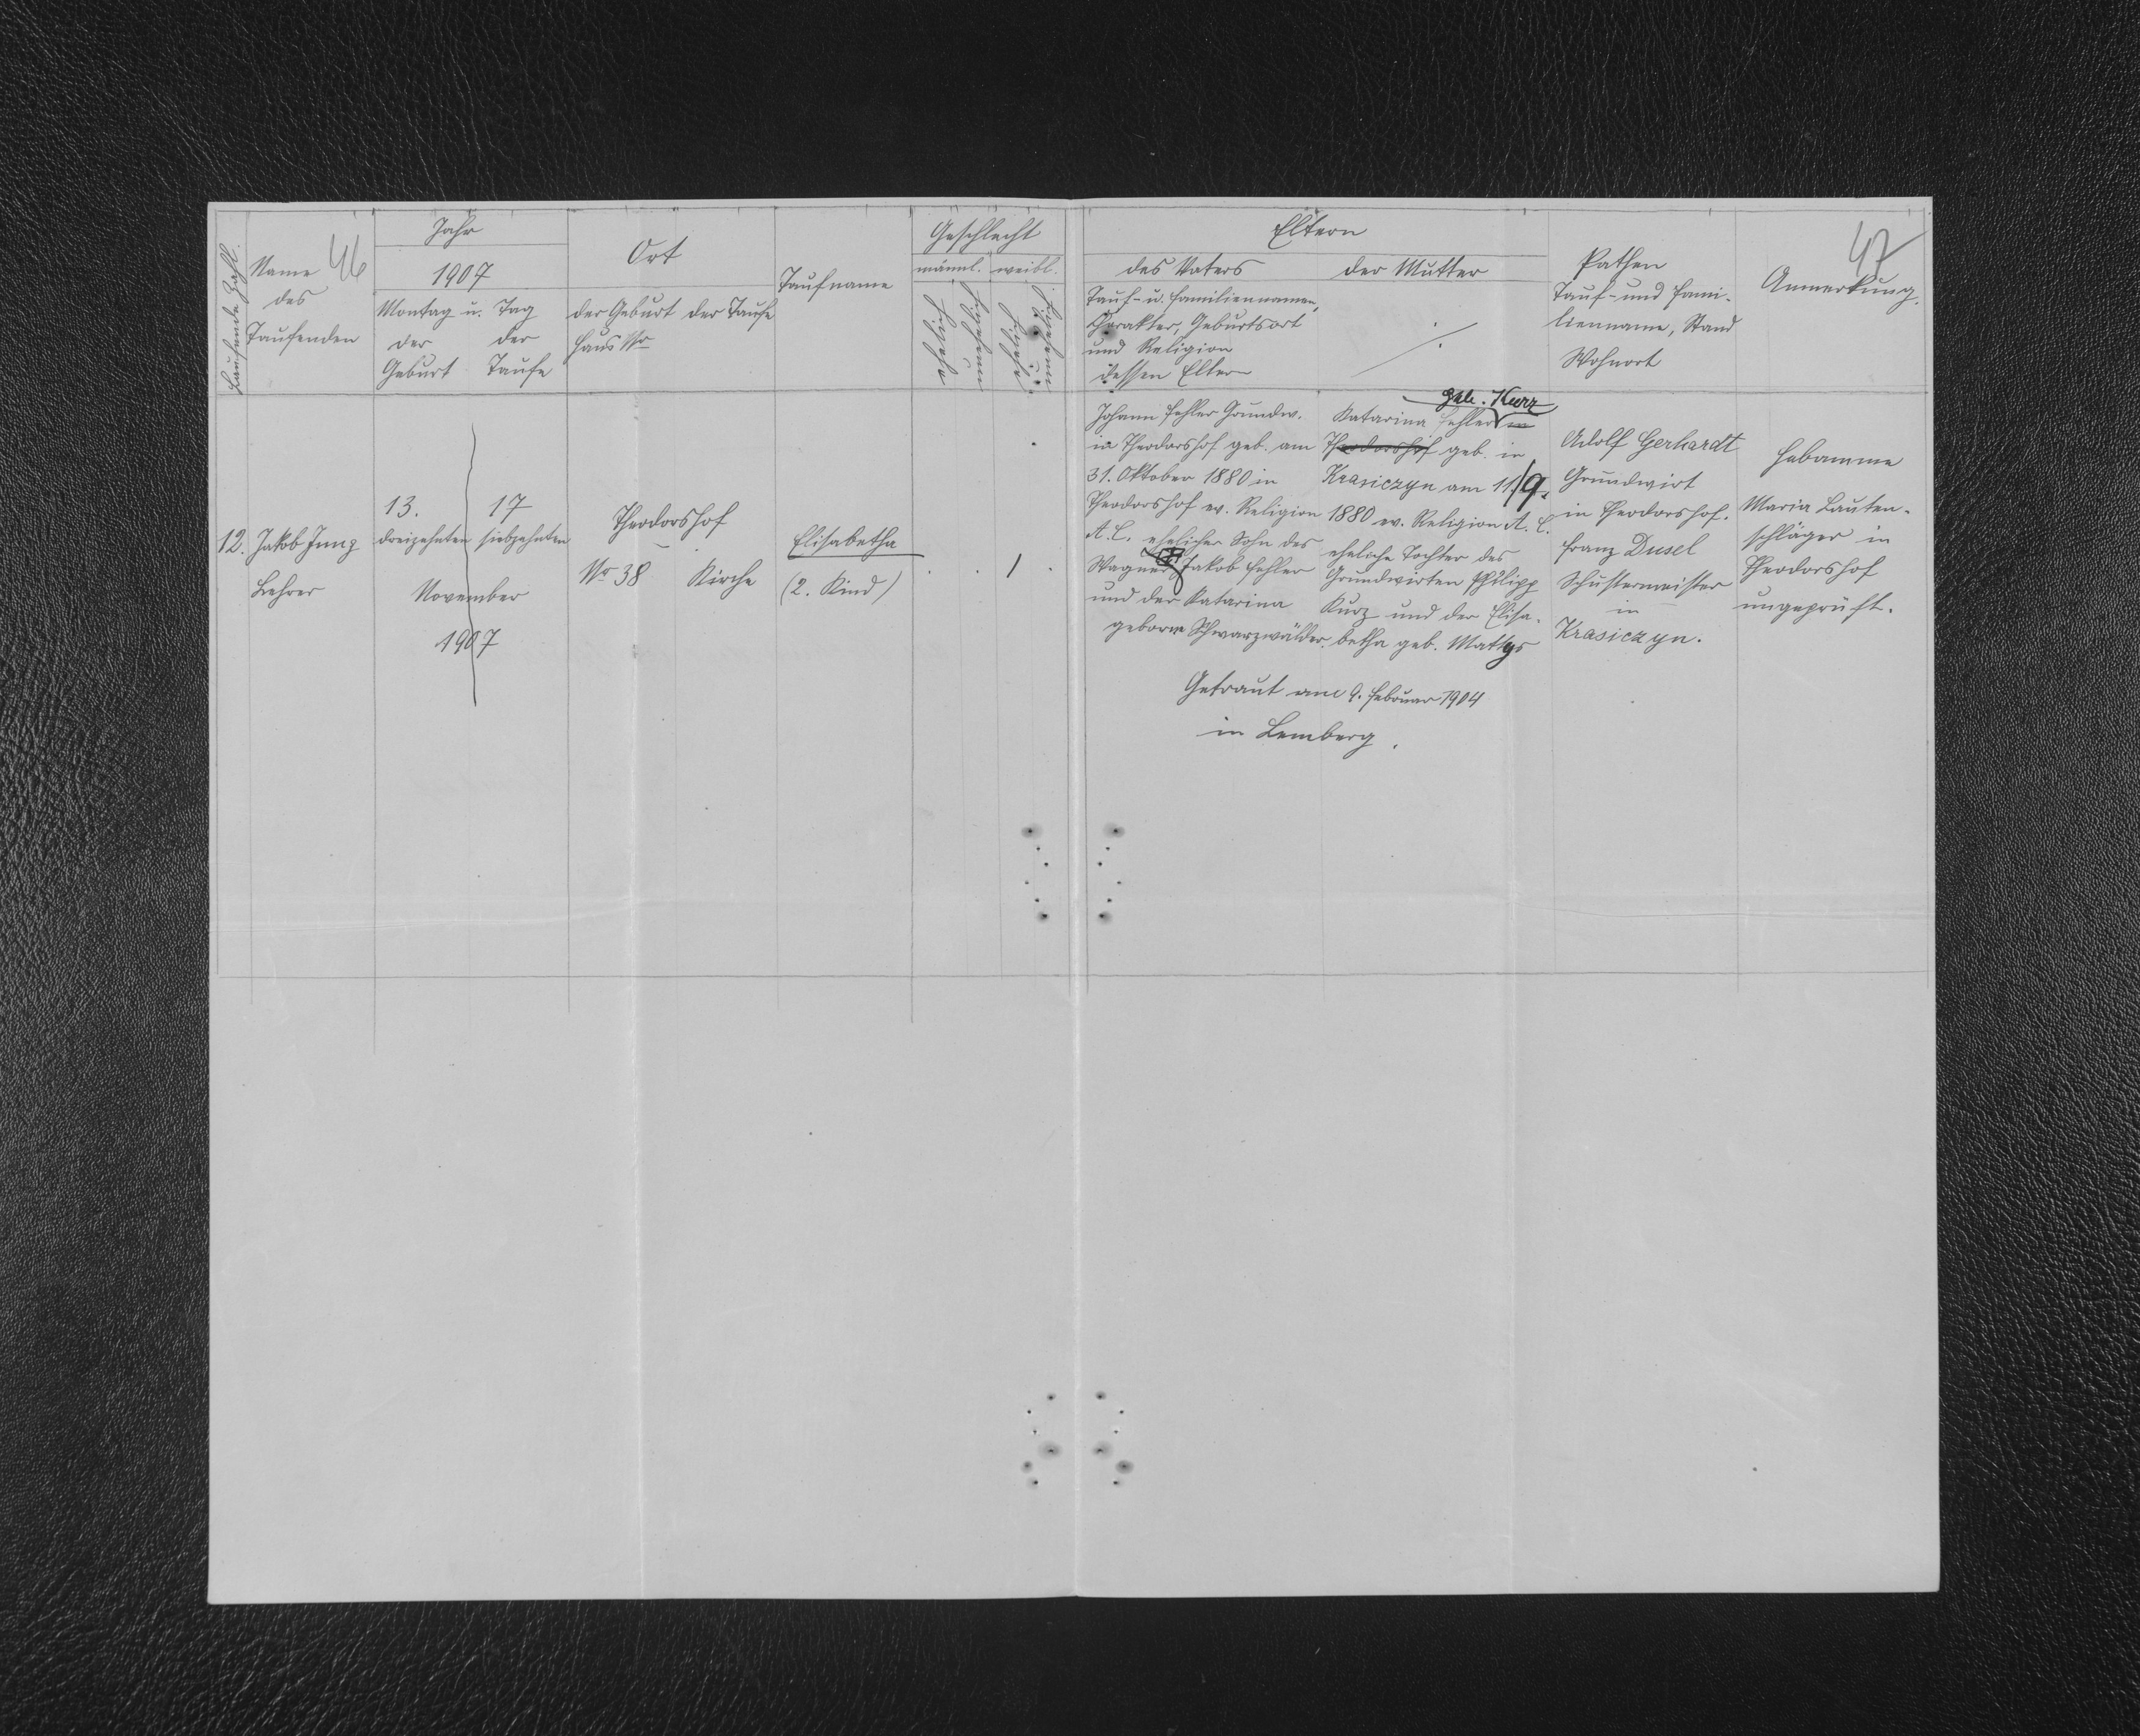 46
47
Laufende Zahl.
Name
des
Taufenden
Jahr
1907
Montag u. Tag
der der
Geburt Taufe
Ort
der Geburt der Taufe
Haus Nro
Taufname
Geschlecht
männl. weibl.
ehelich
unehelich
ehelich
unehelich
Eltern
des Vaters der Mutter
Tauf- u. Familiennamen,
Charakter, Geburtsort
und Religion
dessen Eltern
Pathen
Tauf- und Fami-
lienname, Stand
Wohnort
Anmerkung.
12. Jakob Jung
Lehrer
13. 17
dreizehnten siebzehnten
November
1907
Theodorshof
Nro 38 Kirche
Elisabetha
(2. Kind)
1
Johann Fehler Grundw.
in Theodorshof geb. am
31. Oktober 1880 in
Theodorshof ev. Religion
A. C. ehelicher Sohn des
Wagner Jakob Fehler
und der Katarina
geborne Schwarzwälder.
geb. Kurz
Katarina Fehler in
Theodorshof geb. in
Krasiczyn am 11/9.
1880 ev. Religion A. C.
eheliche Tochter des
Grundwirten Philipp
Kurz und der Elisa-
betha geb. Mathys
Getraut am 9. Februar 1904
in Lemberg.
Adolf Gerhardt
Grundwirt
in Theodorshof.
Franz Dusel
Schustermeister
in
Krasiczyn.
Hebamme
Maria Lauten-
schläger in
Theodorshof
ungeprüft.